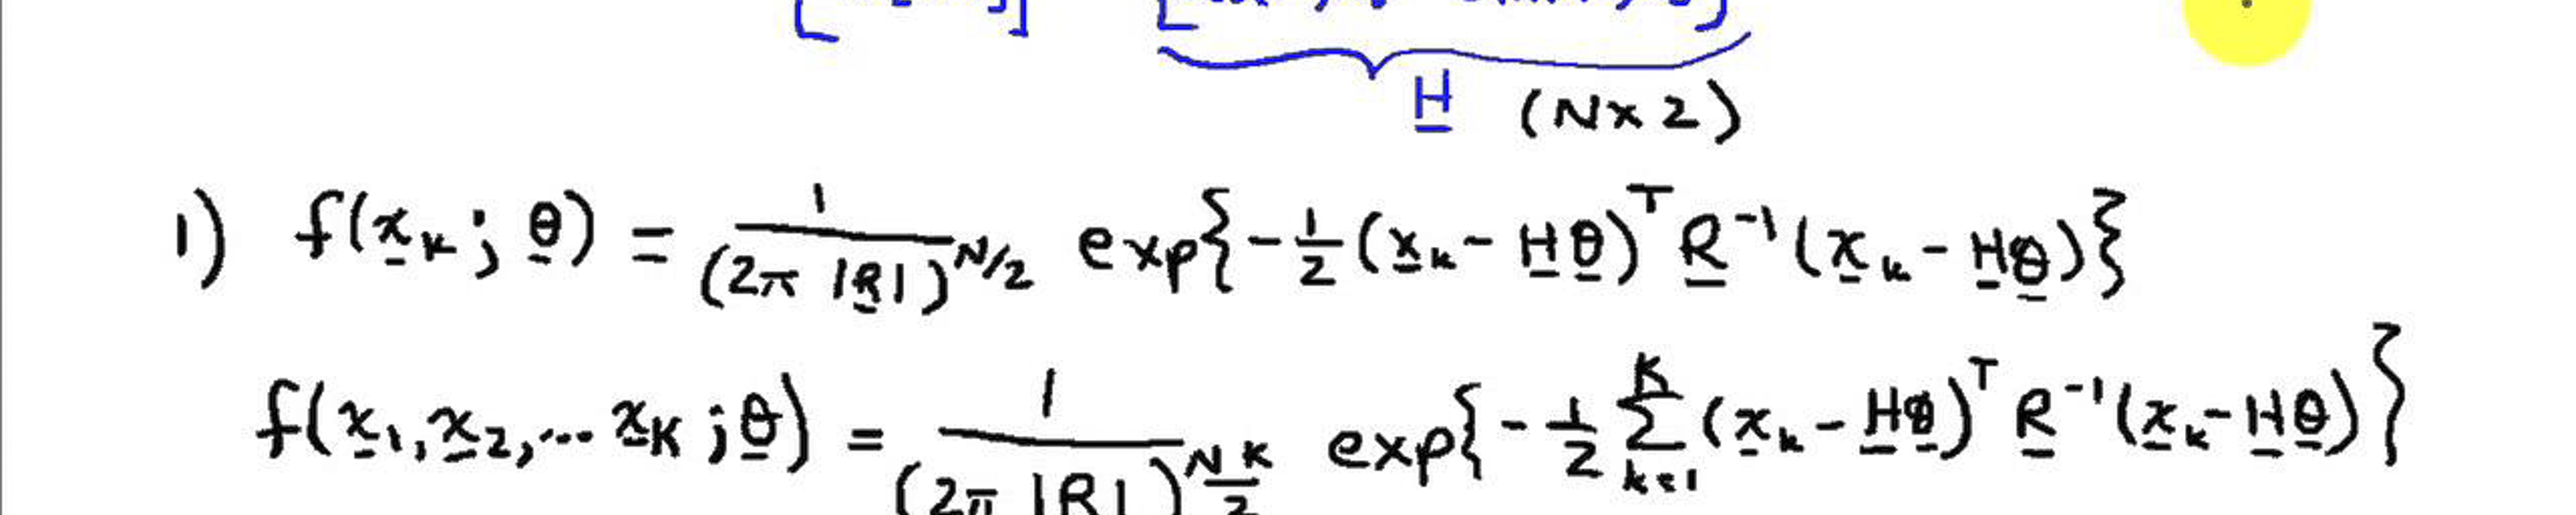 H (N×2)
1) f(x_k; θ) = 1/(2π |R|)^{N/2} exp{-1/2 (x_k - Hθ)^T R^{-1} (x_k - Hθ)}
f(x_1, x_2, ... x_K; θ) = 1/(2π |R|)^{NK/2} exp{-1/2 Σ_{k=1}^{K} (x_k - Hθ)^T R^{-1} (x_k - Hθ)}